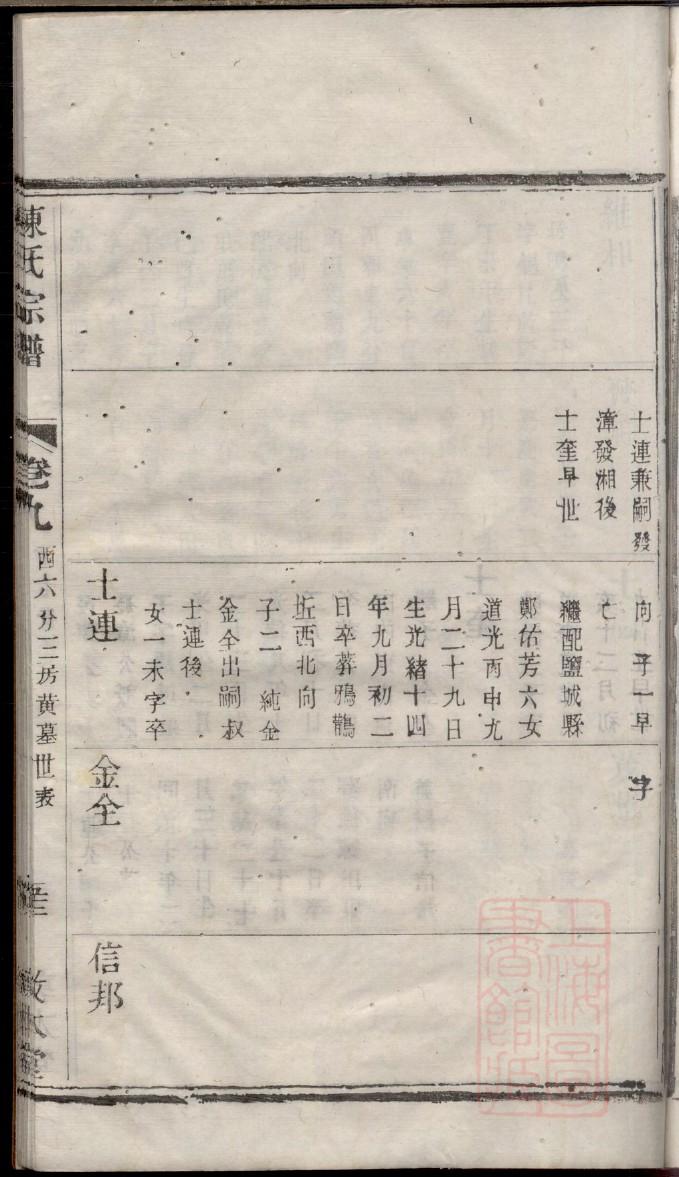 士連兼嗣發
漳發湘後
士奎早世
向 子一早
亡
繼配鹽城縣
鄭佑芳六女
道光丙申九
月二十九日
生光緒十四
年九月初二
日卒葬鴉鵲
坵西北向
子二 純金
金全出嗣叔
士連後
女一未字卒
士連
字
金全
信邦
陳氏宗譜
卷九
西六分三房黄墓世表
上海圖
書館藏